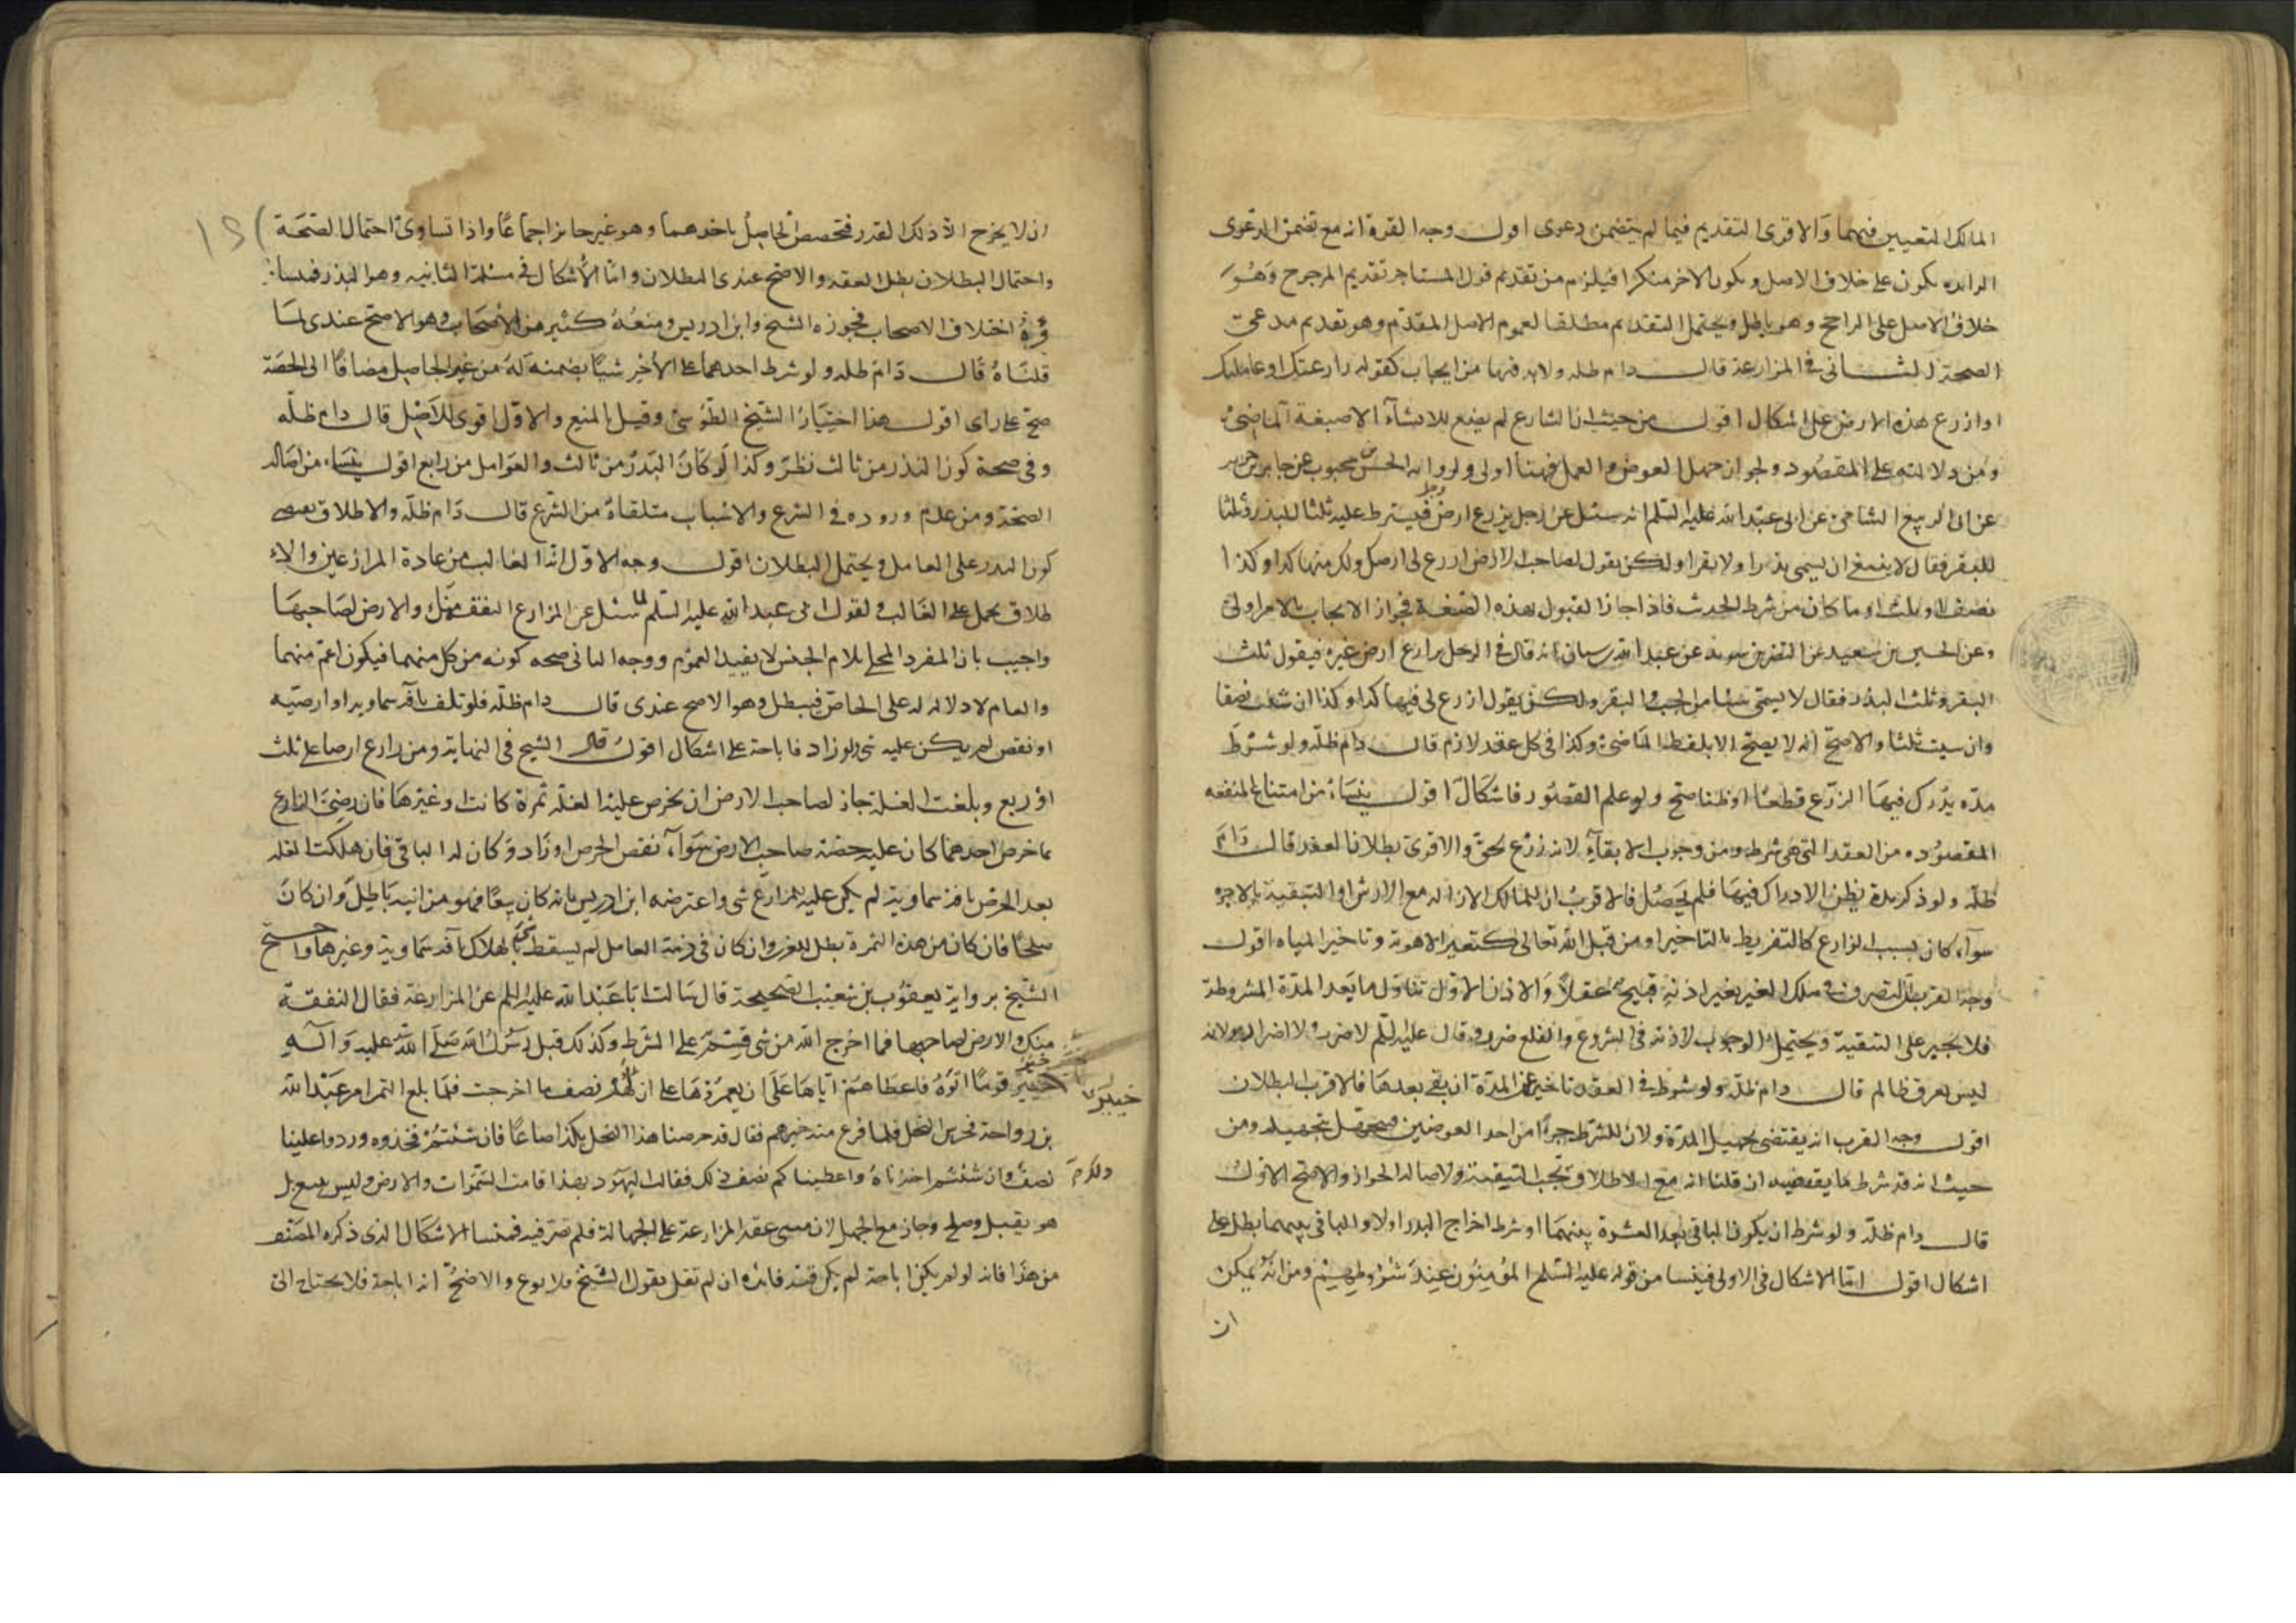 المالك التعيين فيهما والاقوى التقديم فيما لم يتضمن دعوى اقول وجه القوة انه مع تضمن الدعوى
الزايده يكون على خلاف الاصل ويكون الاخر منكرا فيلزم من تقديم قول المستاجر تقديم المرجوح وهو
خلاف الاصل على الراجح وهو باطل ويحتمل التقديم مطلقا لعموم الاصل المقدم وهو تقديم مدعى
الصحة الثانى فى المزارعة قال دام ظله ولابد فيها من ايجاب كقوله زارعتك او عاملتك
او ازرع هذه الارض على اشكال اقول من حيث ان الشارع لم يضع للانشاء الا صيغة الماضى
ومن دلالته على المقصود ولجواز جهل العوض والعمل فهنا اولى ولرواية الحسن بن محبوب عن خالد بن جرير
عن ابى الربيع الشامى عن ابى عبد الله عليه السلم انه سئل عن رجل يزرع ارض رجل فيشترط عليه ثلثا للبذر وثلثا
للبقر فقال لا ينبغى ان يسمى بذرا ولا بقرا ولكن يقول لصاحب الارض ازرع لى ارضك ولك منها كذا وكذا
نصف او ثلث او ما كان من شرط الحدث فاذا جاز القبول بهذه الصيغة فجواز الايجاب بالامر اولى
وعن الحسين بن سعيد عن النضر بن سويد عن عبد الله بن سنان انه قال فى الرجل يزارع ارض غيره فيقول ثلث
البقر وثلث البذر فقال لا يسمى شيئا من الحب والبقر ولكن يقول ازرع لى فيها كذا وكذا ان شئت نصفا
وان شئت ثلثا والاصح انه لا يصح الا بلفظ الماضى وكذا فى كل عقد لازم قال دام ظله ولو شرط
مدة يدرك فيها الزرع قطعا او ظنا صح ولو علم القصور فاشكال اقول ينشاء من امتناع المنفعه
المقصوده من العقد التى هى شرط ومن وجوب الابقاء لانه زرع بحق والاقوى بطلان العقد قال دام
ظله ولو ذكر مدة يظن الادراك فيها فلم يحصل فالاقرب ان للمالك الازاله مع الارش او التبقية بالاجره
سواء كان بسبب الزارع كالتفريط بالتاخير او من قبل الله تعالى كتغير الاهوية وتاخير المياه اقول
وجه القرب ان التصرف فى ملك الغير بغير اذنه قبيح عقلا والاذن الاول تناول ما بعد المدة المشروطة
فلا يجبر على التبقية ويحتمل الوجوب لاذنه فى الشروع والقلع ضرر وقال عليه السلم لا ضرر ولا اضرار ولانه
ليس بعرق ظالم قال دام ظله ولو شرط فى العقد تاخيره عن المدة ان بقى بعدها فالاقرب البطلان
اقول وجه القرب انه يقتضى تجهيل المدة ولان للشرط جزءا من احد العوضين فجهله تجهيله ومن
حيث انه قد شرط ما يقتضيه ان قلنا انه مع الاطلاق تجب التبقية ولاصالة الجواز والاصح الاول
قال دام ظله ولو شرط ان يكون الباقى بعد العشرة بينهما او شرط اخراج البذر اولا والباقى بينهما بطل على
اشكال اقول اما الاشكال فى الاولى فينشا من قوله عليه السلم المؤمنون عند شروطهم ومن انه يمكن
ان
ان لا يخرج الا ذلك القدر فتختص الحاصل باحدهما وهو غير جايز اجماعا واذا تساوى احتمال الصحة
واحتمال البطلان بطل العقد والاصح عندى البطلان واما الاشكال فى مسئلة الثانيه وهو البذر فمنشاؤه
اختلاف الاصحاب فجوزه الشيخ وابن ادريس ومنعه كثير من الاصحاب وهو الاصح عندى لما
قلناه قال دام ظله ولو شرط احدهما على الاخر شيئا يضمنه له من غير الحاصل مضافا الى الحصة
صح على راى اقول هذا اختيار الشيخ الطوسى وقيل بالمنع والاول اقوى للاصل قال دام ظله
وفى صحة كون البذر من ثالث نظر وكذا لو كان البذر من ثالث والعوامل من رابع اقول ينشاء من اصالة
الصحة ومن عدم وروده فى الشرع والاسباب متلقاة من الشرع قال دام ظله والاطلاق يقتضى
كون البذر على العامل ويحتمل البطلان اقول وجه الاول ان الغالب من عادة المزارعين والا
طلاق يحمل على الغالب لقول ابى عبد الله عليه السلم لما سئل عن المزارع النفقه منك والارض لصاحبها
واجيب بان المفرد المحلى بلام الجنس لا يفيد العموم ووجه الثانى صحه كونه من كل منهما فيكون اعم منهما
والعام لا دلالة له على الخاص فيبطل وهو الاصح عندى قال دام ظله فلو تلف بافه سماويه او ارضيه
او نقص لم يكن عليه شى ولو زاد فاباحة على اشكال اقول قال الشيخ فى النهاية ومن زارع ارضا على ثلث
او ربع وبلغت الغلة جاز لصاحب الارض ان يخرص عليه الغلة ثمرة كانت او غيرها فان رضى الزارع
بما خرص احدهما كان عليه حصة صاحب الارض سواء نقص الخرص او زاد وكان له الباقى فان هلكت الغله
بعد الخرص بافة سماوية لم يكن عليه للمزارع شى واعترضه ابن ادريس بانه كان بيعا فهو مزابنه باطل وان كان
صلحا فان كان من هذه الثمرة بطل للغرر وان كان فى ذمة العامل لم يسقط شى بهلاك بافه سماوية وغيرها واحتج
الشيخ برواية يعقوب بن شعيب الصحيحة قال سالت ابا عبد الله عليه السلم عن المزارعة فقال النفقة
منك والارض لصاحبها فما اخرج الله من شى قسم على الشرط وكذلك قبل رسول الله صلى الله عليه وآله
خيبر قوما اتوه فاعطاهم اياها على ان يعمروها على ان لهم نصف ما اخرجت فلما بلغ التمر امر عبد الله
خيبر
بن رواحة فخرص النخل فلما فرغ منه خيرهم فقال قد خرصنا هذا النخل بكذا صاعا فان شئتم فخذوه وردوا علينا
نصف وان شئتم اخذناه واعطيناكم نصف ذلك فقالت اليهود بهذا قامت السموات والارض وليس ببيع بل
هو تقبيل وصلح وجاز مع الجهل لان مبنى عقد المزارعة على الجهالة فلم تضر فيه فمنشا الاشكال الذى ذكره المصنف
من هذا فانه لو لم يكن اباحة لم يكن فيه فايده ان لم نقل بقول الشيخ والاصح انه اباحة فلا يحتاج الى